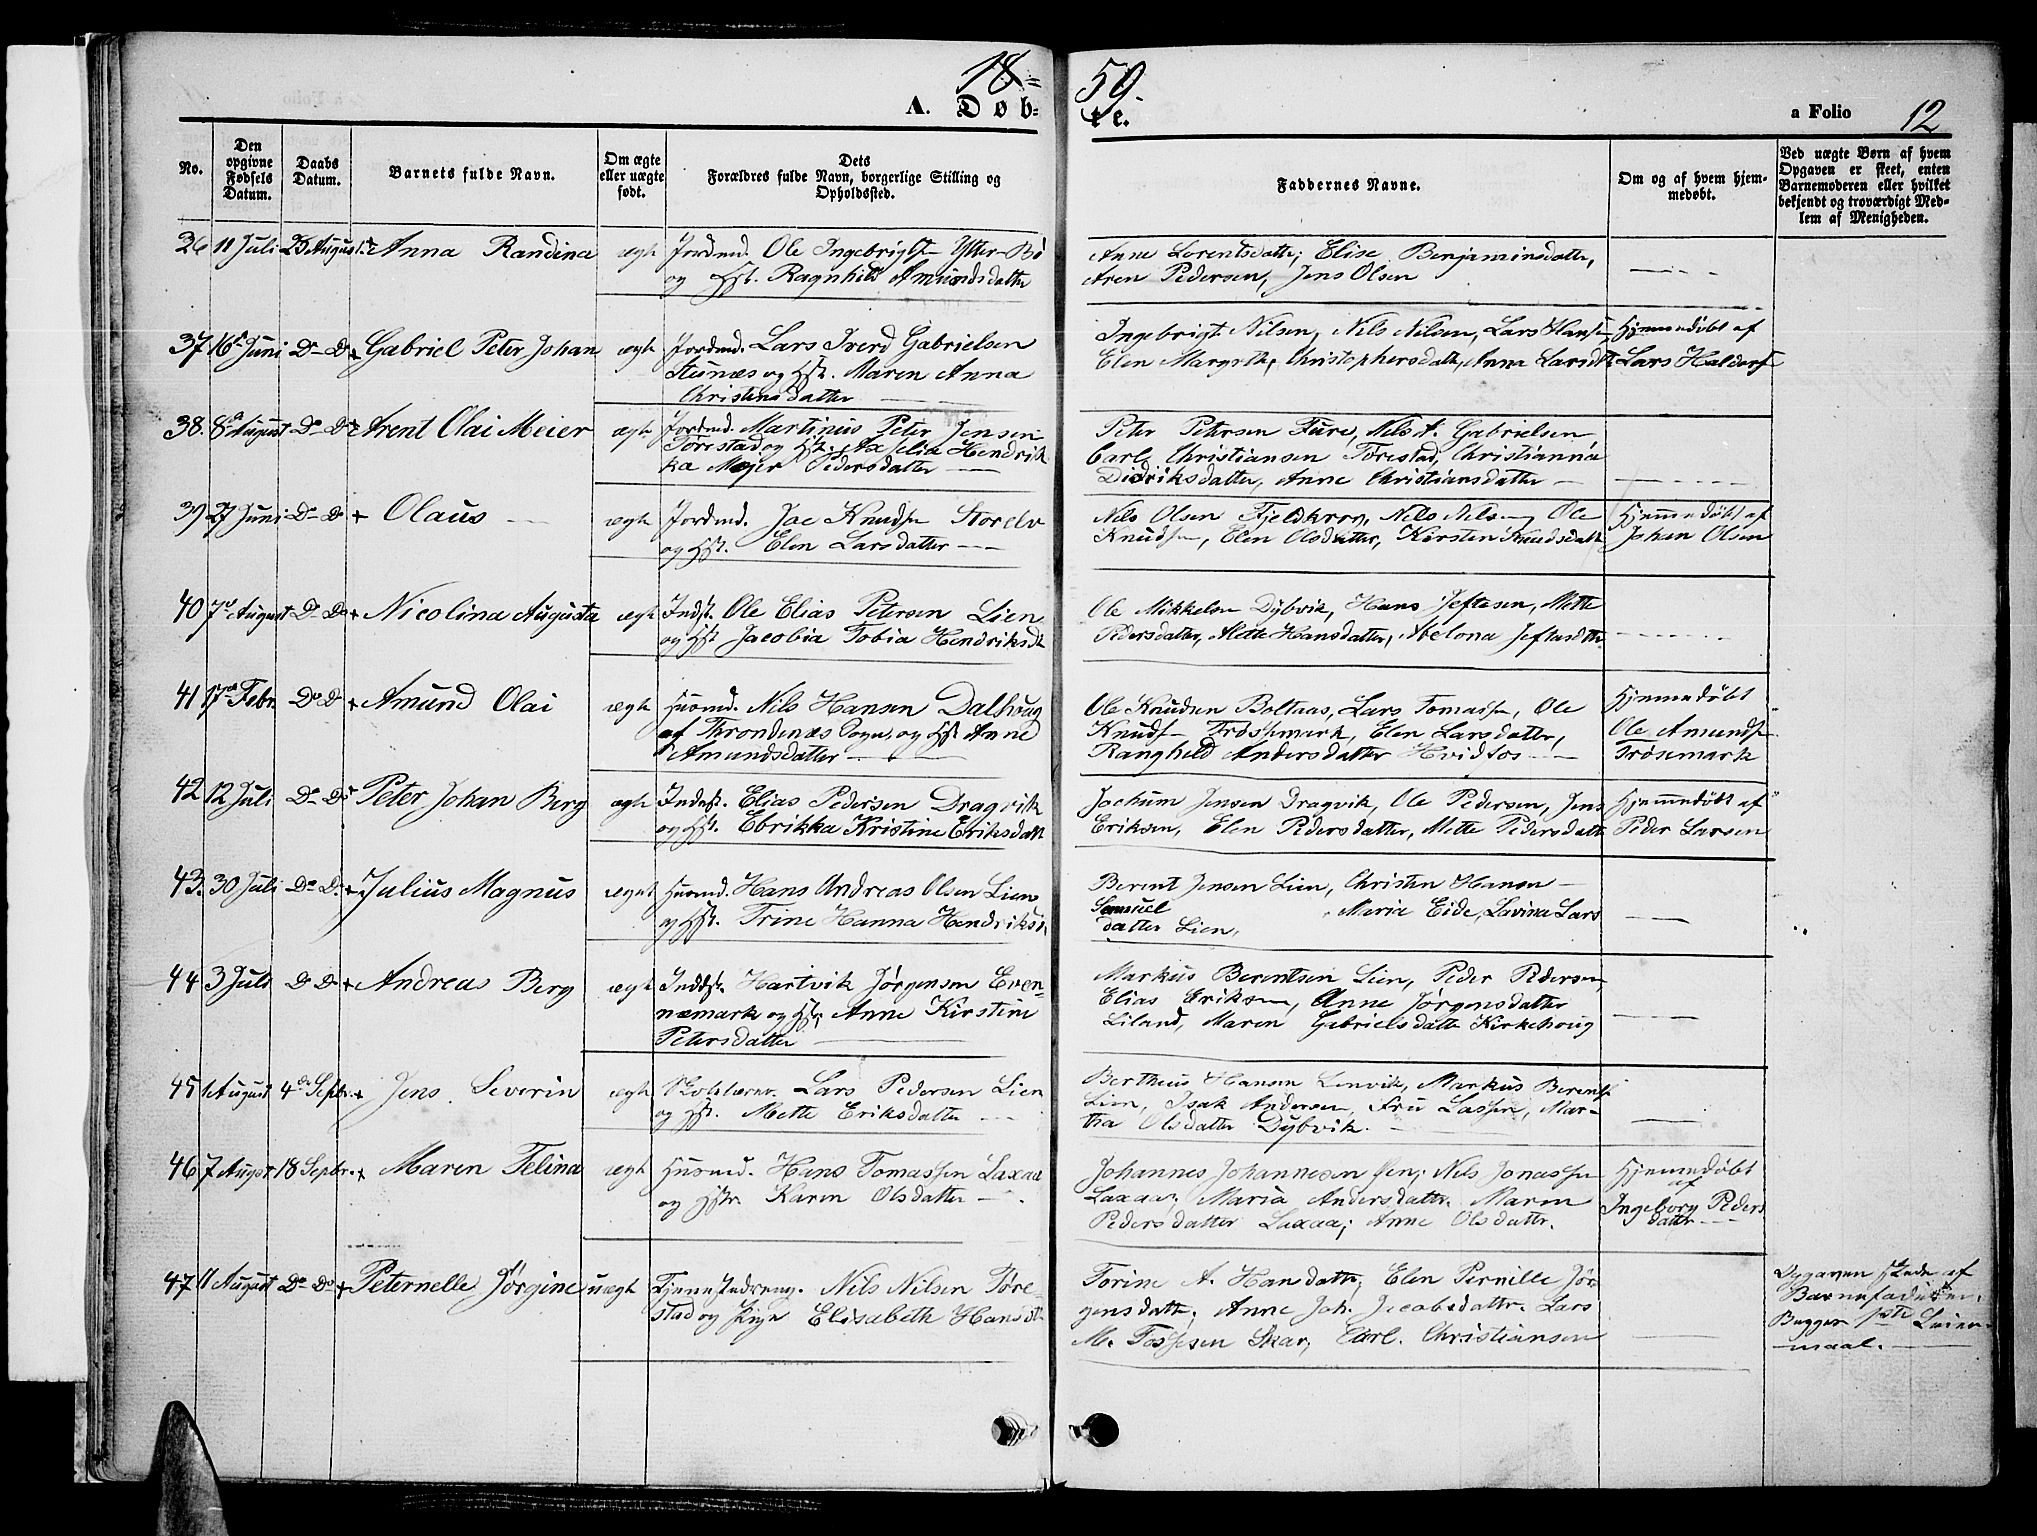 18=
59.
A. Døb=
te.
a Folio 12
No.
Den opgivne Fødsels Datum.
Daabs Datum.
Barnets fulde Navn.
Om ægte eller uægte født.
Dets Forældres fulde Navn, borgerlige Stilling og Opholdssted.
Faddernes Navne.
Om og af hvem hjemmedøbt.
Ved uægte Børn af hvem Opgaven er skeet, enten Barnemoderen eller hvilket bekjendt og troværdigt Medlem af Menigheden.
36 11 Juli 25 August Anna Randina ægte Jordmd. Ole Ingebrigts Ytter-Bø
og Hst. Ragnhild Amundsdatter
Anne Lorentsdatter; Elise Benjaminsdatter,
Aren Pedersen, Jens Olsen
37 16de Juni Do Do Gabriel Peter Johan ægte Jordmd. Lars Iverd Gabrielsen
Stensnæs og Hst. Maren Anna
Christensdatter
Ingebrigt Nilsen, Nils Nilsen, Lars Hansen
Elen Margrethe Christophersdatter, Anna Larsdtr
Hjemmedøbt af
Lars Haldors
38. 8de August Do Do Arent Olai Meier ægte Jordmd. Martinus Peter Jensen
Tørestad og Hst. Axelia Hendrik
ka Mejer Pedersdatter
Peter Petersen Fure, Nils A. Gabrielsen
Carl Christiansen Tørestad, Christianna
Didriksdatter, Anne Christiansdatter
39 27 Juni Do Do Olaus ægte Jordmd. Jac Knuds Storelv
og Hst. Elen Larsdatter
Nils Olsen Fjeldkrog, Nils Nilsen, Ole
Knudsen, Elen Olsdatter, Kirsten Knudsdatter
Hjemmedøbt af
Johan Olsen
40 7de August Do Do Nicolina Augusta ægte Indst. Ole Elias Petersen Lien
og Hst Jacobia Tobia Hendriksdr
Ole Mikkelsen Dybvik, Hans Jeftesen, Mette
Pedersdatter, Mette Hansdatter, Abelona Jeftasdtr.
41 17de Febr. Do Do Amund Olai ægte Husmd. Nils Hansen Dalhoug
af Throndenæs Sogn, og Hst Anne
Amundsdatter
Ole Knudsen Boltaas, Lars Tomassen, Ole
Knuds Trøssemark, Elen Larsdatter,
Rangheld Andersdatter Hvidfos
Hjemmedøbt
Ole Amunds
Trøsemark
42 12 Juli Do Do Peter Johan Berg ægte Indst. Elias Pedersen Dragvik
og Hst. Ebrikka Kristine Eriksdatt
Jochum Jensen Dragvik, Ole Pedersen, Jens
Eriksen, Elen Pedersdatter, Mette Pedersdatt
Hjemmedøbt af
Peder Larsen
43. 30 Juli Do Do Julius Magnus ægte Husmd. Hans Andreas Olsen Lien
og Hst. Trine Hanna Hendriksd.
Berent Jensen Lien, Christen Hansen
Samuel Maria Eide, Lavina Lars
datter Lien,
44 3 Juli Do Do Andreas Berg ægte Indst. Hartvik Jørgensen Even-
nemark og Hst. Anne Kirstine
Petersdatter
Markus Berentsen Lien, Peder Pedersen
Elias Eriksen, Anne Jørgensdatter
Liland, Maren Gabrielsdatter Kirkehoug
45 1 August 4de Septbr. Jens Severin ægte Skolelærer. Lars Pedersen Lien
og Hst. Mette Eriksdatter
Bertheus Hansen Lenvik, Markus Berents
Lien, Isak Andersen, Fru Lassen, Mar-
tha Olsdatter Dybvik.
46 7 August 18 Septbr. Maren Telina ægte Husmd. Hans Tomassen Laxaa
og Hstr. Karen Olsdatter
Johannes Johannesen Øen; Nils Jonassen
Laxaa; Maria Andersdatter. Maren
Pedersdatter Laxaa; Anne Olsdattr.
Hjemmedøbt
af
Ingeborg Peders
datter
47 11 August Do Do Peternelle Jørgine uægte Tjenestedreng. Nils Nilsen Tøre-
stad og Pige Elisabeth Hansdtr
Torine A. Hansdatter; Elen Pernille Jør
gensdatter; Anne Joh. Jacobsdattr. Lars
M. Tossesen Skar, Carl. Christiansen
Opgaven skede af
Barnefaderen.
Begges 1ste Leier-
maal.